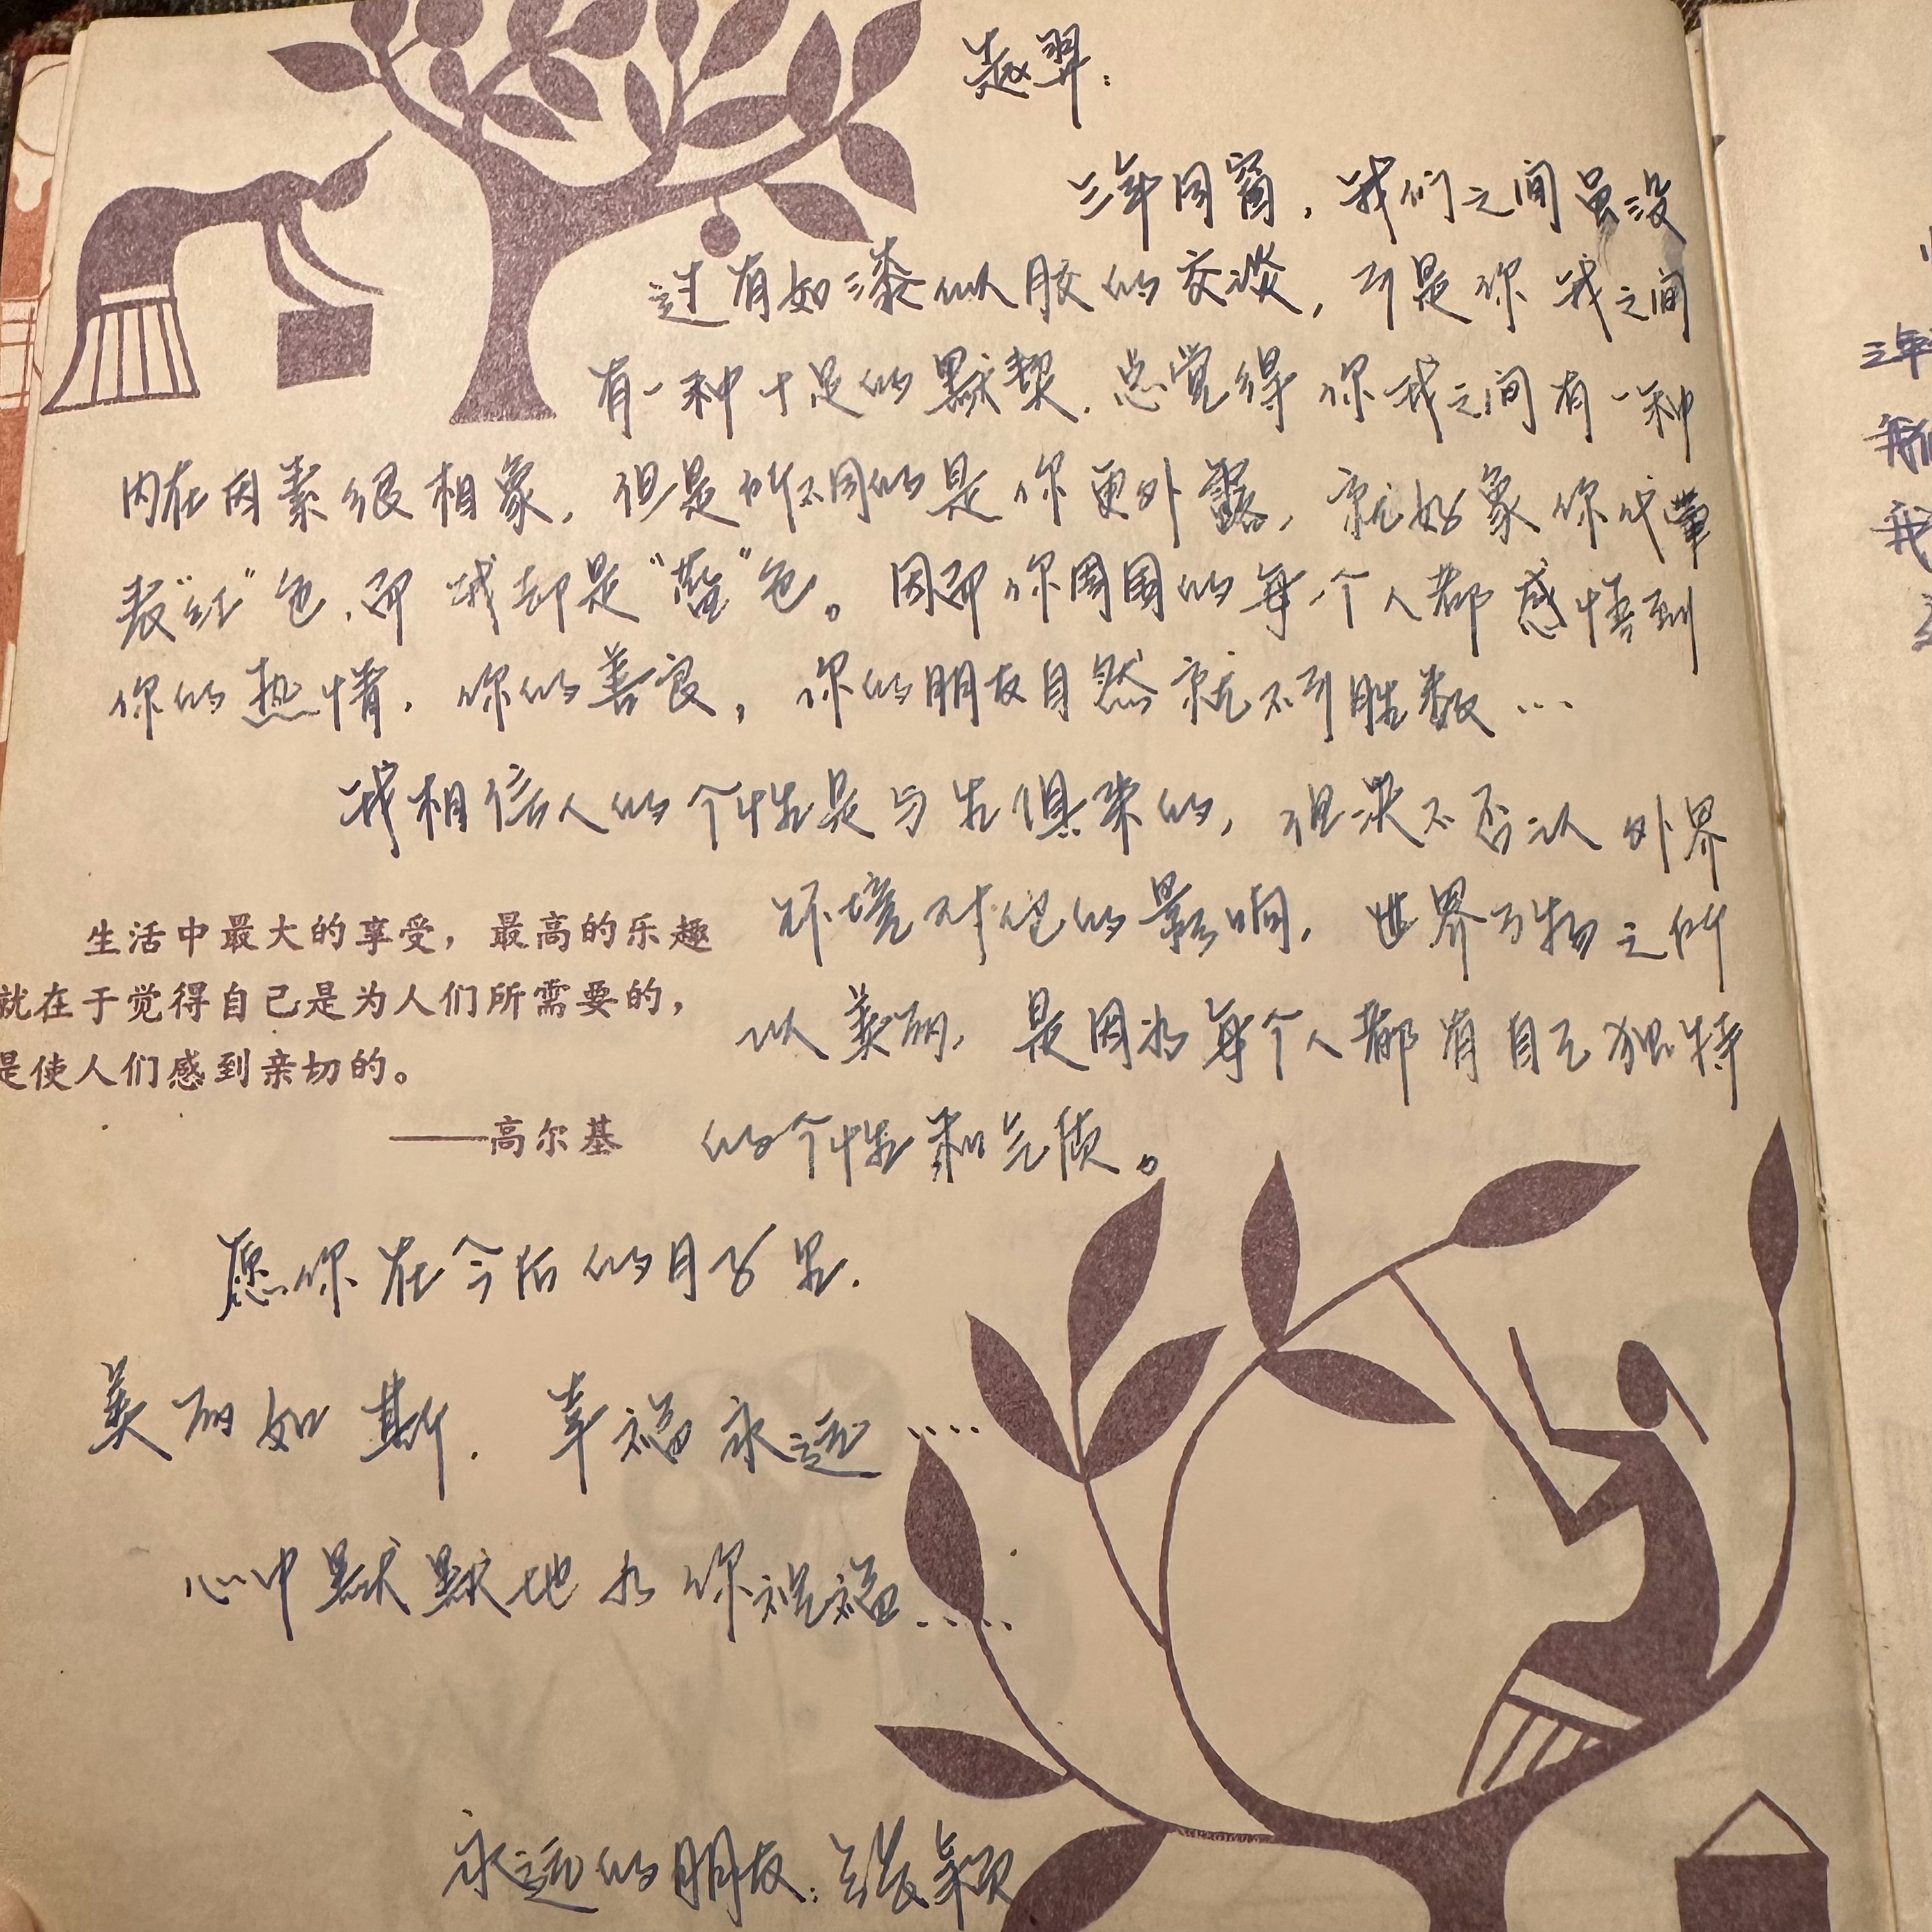 赵羿:
三年同窗,我们之间虽没
过有如漆似胶的交谈,可是你我之间
有一种十足的默契.总觉得你我之间有一种
内在因素很相象,但是所不同的是你更外露,就好象你代
表"红"色,而我却是"蓝"色。因而你周围的每一个人都感悟到
你的热情,你的善良,你的朋友自然就不可胜数…
我相信人的个性是与生俱来的,但决不否认外界
环境对他的影响,世界万物之所
以美丽,是因为每个人都有自己独特
的个性和气质。
生活中最大的享受,最高的乐趣
就在于觉得自己是为人们所需要的,
是使人们感到亲切的。
——高尔基
愿你在今后的日子里.
美丽如斯.幸福永远....
心中默默地为你祝福.....
永远的朋友:张颖
三年
我们
我